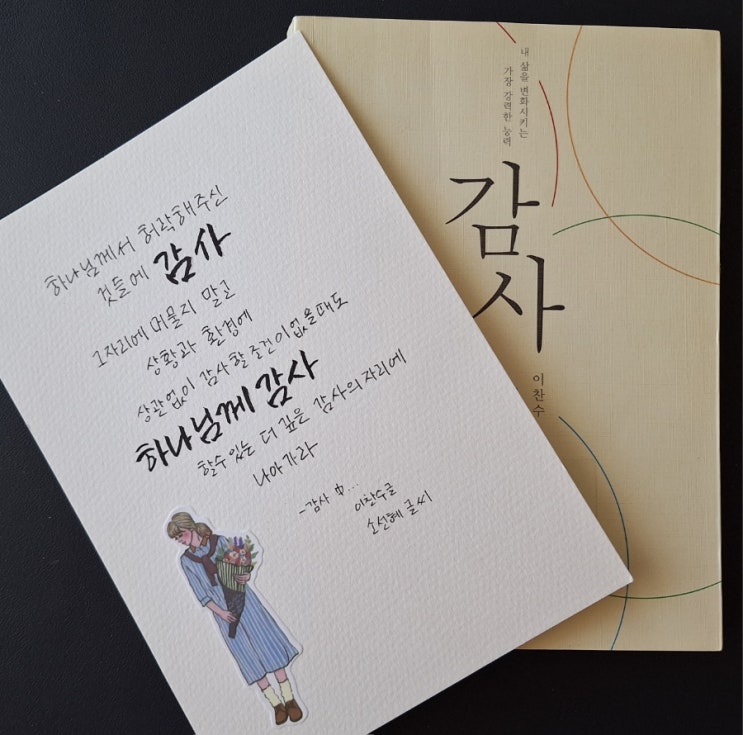 하나님께서 허락해주신
것들에 감사
그자리에 머물지 말고
상황과 환경에
상관없이 감사할 조건이 없을때도
하나님께 감사
할수있는 더 깊은 감사의 자리에
나아가라
-감사 中...
이찬수글
소선혜 글씨
내 삶을 변화시키는
가장 강력한 능력
감사
이찬수